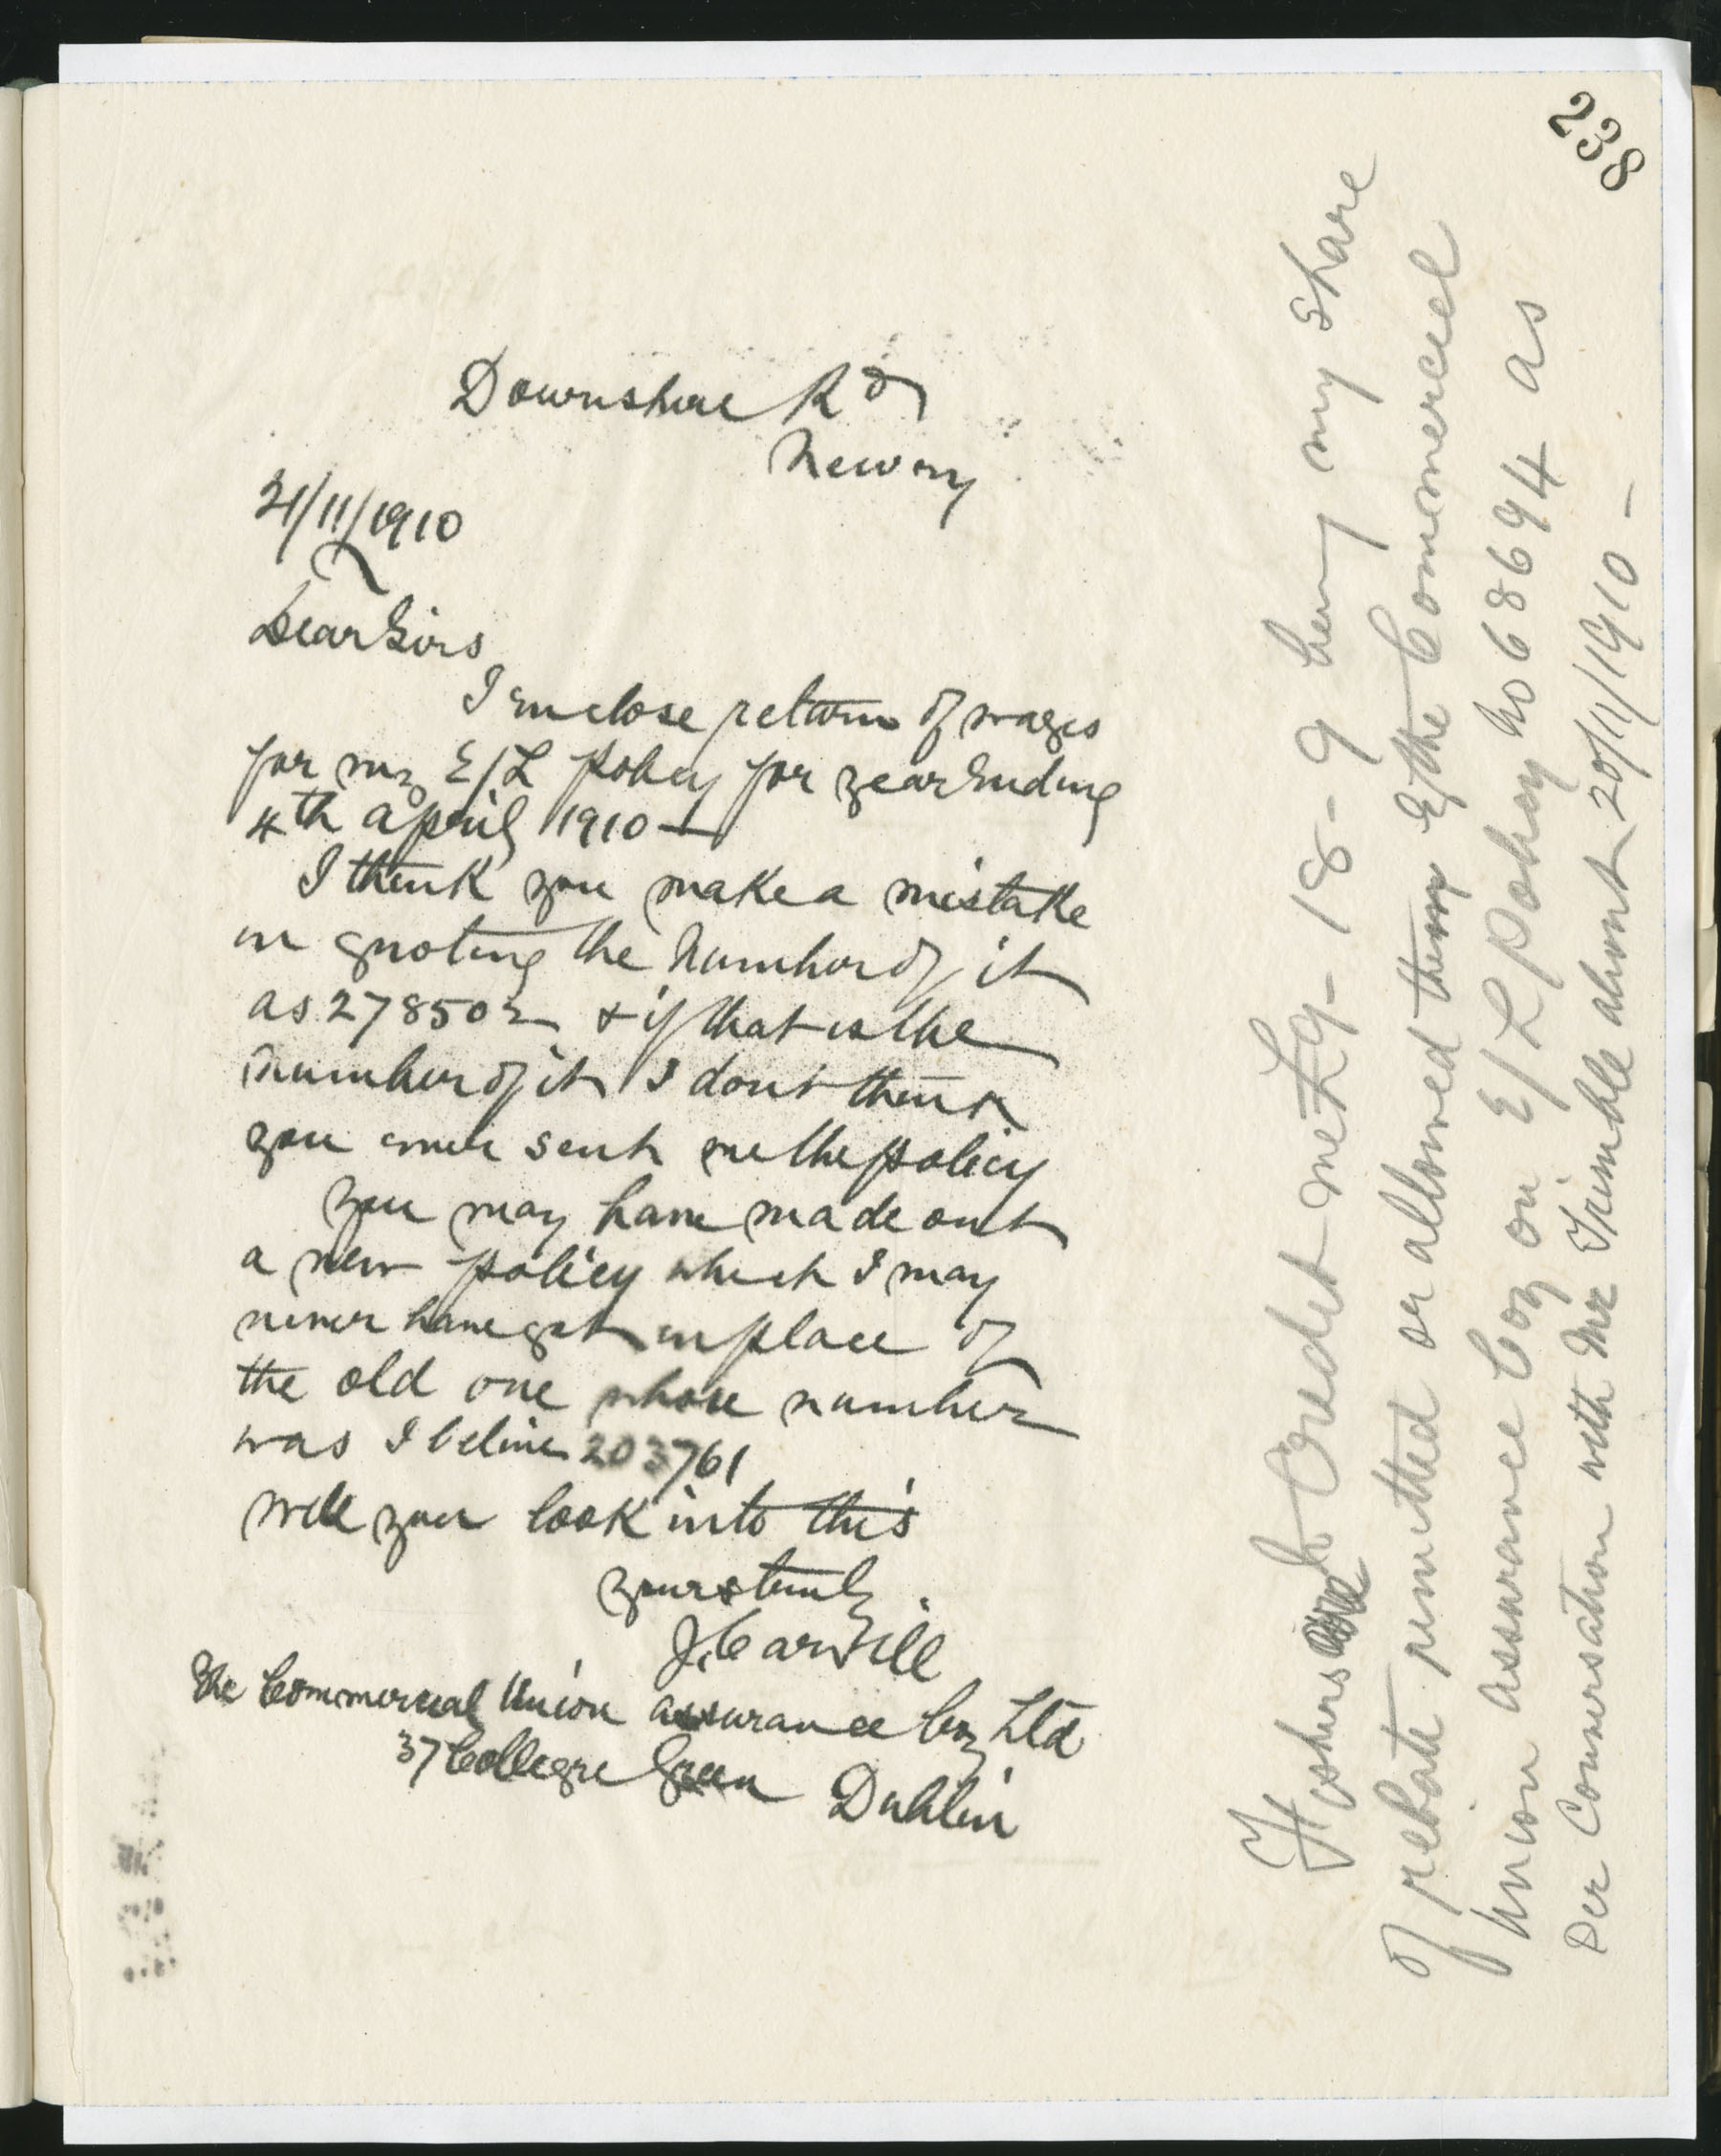 238
Downshire Rd
Newry
21/11/1910
Dear Sirs
I enclose return of wages
for my E/L Policy for year Ending
4th april 1910 —
I think you make a mistake
in quoting the number of it
as 278502 & if that is the
number of it I dont think
you ever sent me the policy
you may have made out
a new policy which I may
never have got in place of
the old one whose number
was I believe 203761
will you look into this
yours truly
J. Carvill
The Commercial Union assurance Coy Ltd
37 College Green Dublin
Fishers Credit me £9-18-9 being my share
of rebate remitted or allowed them by the Commercial
Union assurance Coy on E/L Policy no 68694 as
per conversation with Mr Trimble about 20/11/1910 —